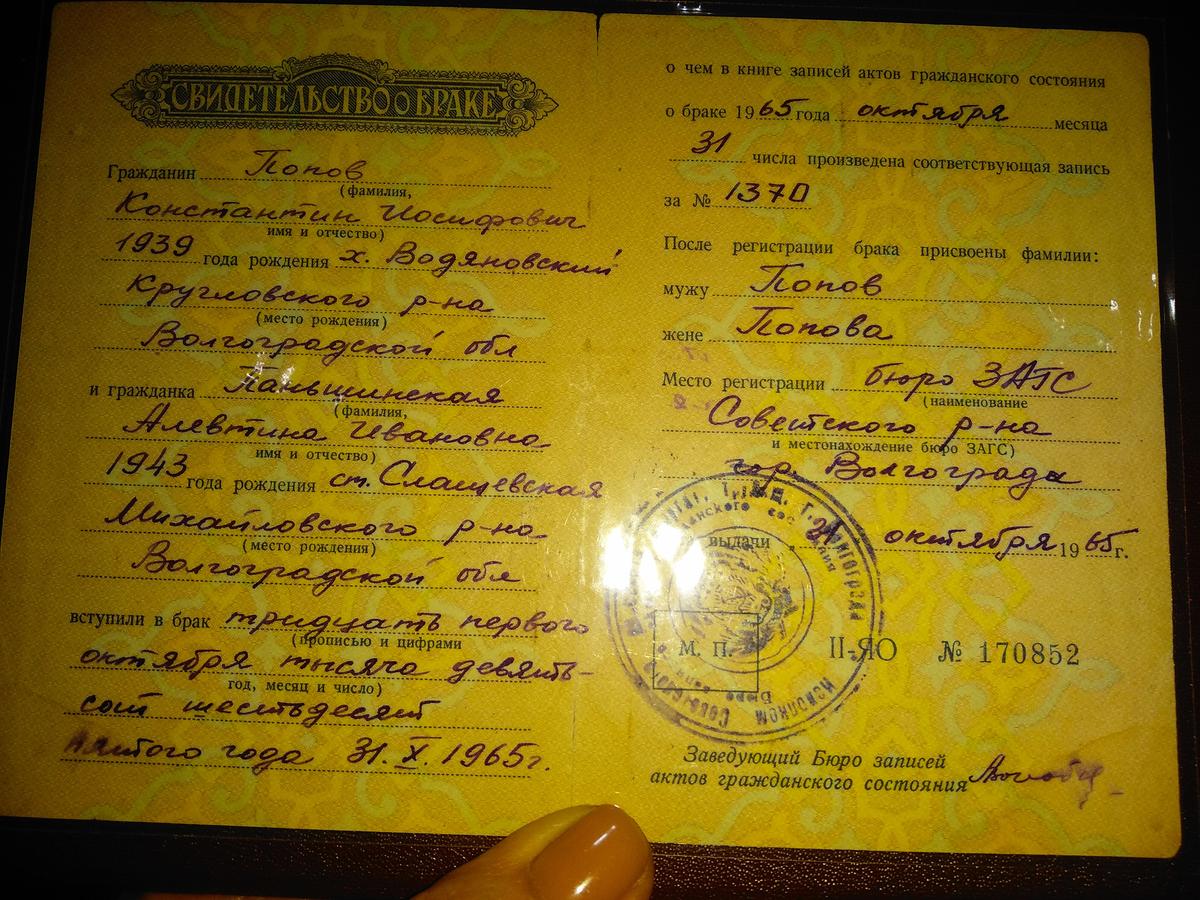 СВИДЕТЕЛЬСТВО о БРАКЕ
Гражданин Попов
(фамилия,
Константин Иосифович
имя и отчество)
1939 года рождения х. Водяновский
Кругловского р-на
(место рождения)
Волгоградской обл
и гражданка Паньшинская
(фамилия,
Алевтина Ивановна
имя и отчество)
1943 года рождения ст. Слащевская
Михайловского р-на
(место рождения)
Волгоградской обл
вступили в брак тридцать первого
(прописью и цифрами
октября тысяча девять-
год, месяц и число)
сот шестьдесят
пятого года 31. X. 1965г.
о чем в книге записей актов гражданского состояния
о браке 1965 года октября месяца
31 числа произведена соответствующая запись
за № 1370
После регистрации брака присвоены фамилии:
мужу Попов
жене Попова
Место регистрации бюро ЗАГС
(наименование
Советского р-на
и местонахождение бюро ЗАГС)
гор. Волгограда
выдачи 31 октября 1965г.
М. П.
II-ЯО № 170852
Исполком
Бюро
Заведующий Бюро записей
актов гражданского состояния